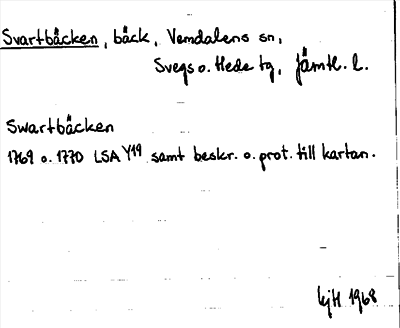 Svartbäcken, bäck, Vemdalens sn,
Svegs o. Hede tg, Jämtl. l.
Swartbäcken
1769 o. 1770 LSA Y19 samt beskr. o. prot. till kartan.
1968